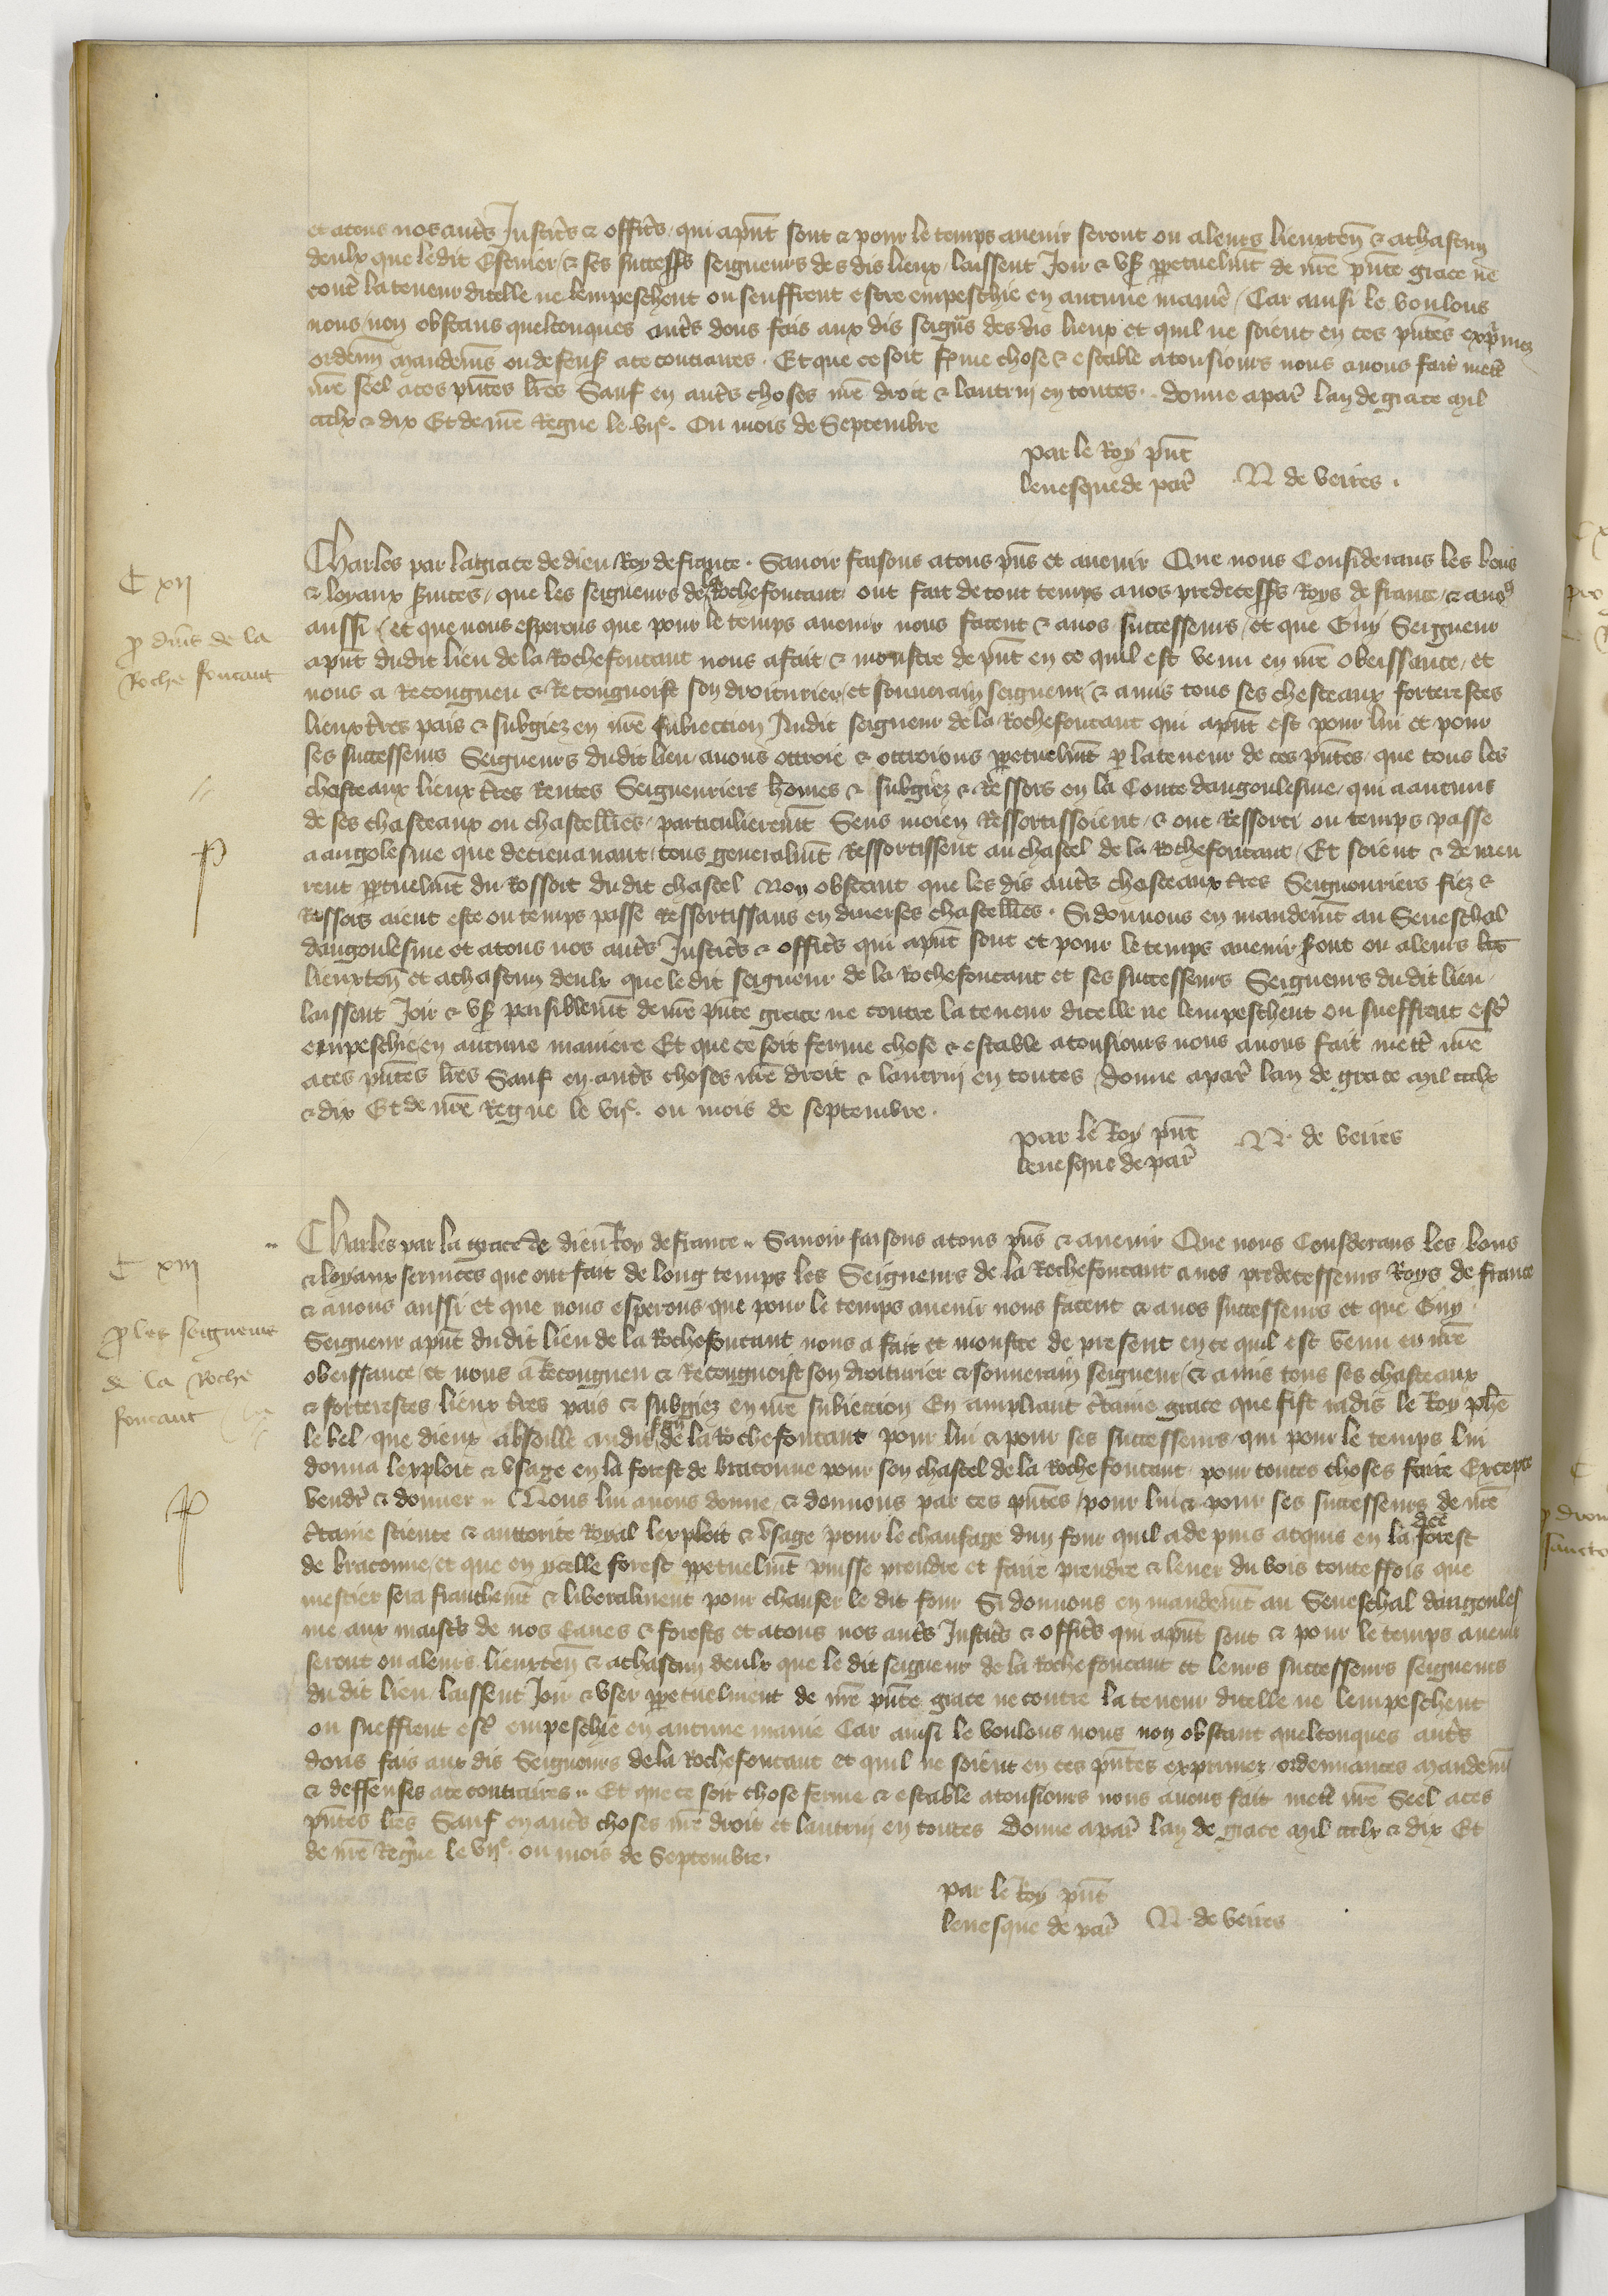 et atous nos aut̃s Justic̃s & offic̃s qui ap̃nt sont & pour le temps avenir seront ou aleurs lieuxteñ & achascun
deulx que ledit Escuier & ses successẽs seigneurs des dis lieux laissent Joir & vs̃ ꝑpetuelm̃t de nr̃e p̃nte grace ne
cont̃ la teneur dicelle ne lempeschent ou seuffrent estre empeschie en aucune manie᷑ / Car ainsi le voulons
nous / non obstans quelconques aut̃s dons fais aux dis seign̄s des dis lieux et quil ne soient en ces p̃ntes exp̃mez
ordenñ mandem̃s ou defens̃ ace contraires . Et que ce soit fẽme chose & estable atousiours nous avons fait mett̃
nr̃e seel aces p̃ntes lr̃es Sauf en aut̃s choses nr̃e droit & lautruy en toutes . donne apar̃ lan de grace mil
ccclx & dix Et de nr̃e Regne le vijᵉ . Ou mois de Septembre
par le Roy p̃nt
levesque de par̃ N de veires .
C xij
Charles par la grace de dieu Roy de france . Savoir faisons atous p̃ns et avenir Que nous Considerans les bons
& loyaux s̃vices / que les seigneurs de la Rochefoucaut ont fait de tout temps anos predecess̃s Roys de france / & anoꝰ
ꝓ dñis de la
Roche foucaut
aussi / et que nous esperons que pour le temps avenir nous facent & anos successeurs / et que Guy Seigneur
ap̃nt dudit lieu de la Rochefoucaut nous a fait & monstre de p̃nt en ce quil est venu en nr̃e obeissance / et
nous a Recongneu & Recongnoist son droiturier / et souverain seigneur / & a mis tous ses chasteaux forteresses
lieux t̃res pais & subgiez en nr̃e subiection Audit seigneur de la Rochefoucaut qui ap̃nt est pour lui et pour
ses successeurs Seigneurs dudit lieu / avons ottroie & ottroions ꝑpetuelm̃t ꝑ la teneur de ces p̃ntes / que tous les
chasteaux lieux t̃res Rentes Seigneuries hom̃es & subgiez & Ressors en la Conte dangoulesme / qui a aucuns
de ses chasteaux ou chastell̃ies / particulierem̃t Sens moien Ressortissoient / & ont Ressorti ou temps passe
a angolesme que dorenavant / tous generalm̃t Ressortissent au chastel de la Rochefoucaut / Et soient & demeu
rent ꝑpetuelm̃t du Ressort dudit chastel Non obstant que les dis aut̃s chasteaux t̃res Seigneuries fiez &
Ressors aient este ou temps passe Ressortissans en diverses chastell̃ies . Si donnons en mandem̃t au Seneschal
dangoulesme et atous nos aut̃s Justic̃s & offic̃s qui ap̃nt sont et pour le temps avenir s̃ont ou aleurs
lieuxteñ et achascun deulx que ledit seigneur de la Rochefoucaut et ses successeurs Seigneurs dudit lieu
laissent Joir & vs̃ paisiblem̃t de nr̃e p̃nte grace ne contre la teneur dicelle ne lempeschent ou sueffrent est̃
empeschie en aucune maniere Et que ce soit ferme chose & estable atousiours nous avons fait mett̃ nr̃e
aces p̃ntes lr̃es Sauf en aut̃s choses nr̃e droit & lautruy en toutes / donne apar̃ lan de grace mil ccclx
& dix Et de nr̃e Regne le vijᵉ . ou mois de septembre .
par le Roy p̃nt
levesque de par̃ N . de veires
C xiij
Charles par la grace de dieu Roy de france . Savoir faisons atous p̃ns & avenir Que nous Considerans les bons
& loyaux services que ont fait de long temps les Seigneurs de la Rochefoucaut a nos predecesseurs Roys de france
& anous aussi et que nous esperons que pour le temps avenir nous facent & anos successeurs et que Guy
ꝓ les seigneurs
de la Roche
foucaut
Seigneur ap̃nt dudit lieu de la Rochefoucaut nous a fait et monstre de present en ce quil est venu en nr̃e
obeissance / et nous a Recongneu & Recongnoist son droiturier & souverain seigneur / & a mis tous ses chasteaux
& forteresses lieux t̃res pais & subgiez en nr̃e subiection En ampliant c̃taine grace que fist iadis le Roy ph̃e
le bel / que dieux absoille audit sgñ de la Rochefoucaut pour lui & pour ses successeurs / qui pour le temps lui
donna lexploit & vsage en la forest de braconne pour son chastel de la Rochefoucaut pour toutes choses faire Excepte
vendr̃ & donner . Nous lui avons donne / & donnons par ces p̃ntes / pour lui & pour ses successeurs de nr̃e
c̃taine science & auctorite Royal lexploit & vsage pour le chaufage dun four quil a de puis acquis en la dc̃e forest
de braconne / et que en ycelle forest ꝑpetuelm̃t puisse prendre et faire prendre & lever du bois touteffois que
mestier sera franchem̃t & liberalment pour chaufer le dit four Si donnons en mandem̃t au Seneschal dangoules
me aux maist̃s de nos Eaues & forests et atous nos aut̃s Justic̃s & offic̃s qui ap̃nt sont & pour le temps avenir
seront ou aleurs lieuxteñ & achascun deulx que le dit seigneur de la Rochefoucaut et leurs successeurs seigneurs
du dit lieu laissent Joir & vser ꝑpetuelment de nr̃e p̃nte grace ne contre la teneur dicelle ne lempeschent
ou sueffrent est̃ empeschie en aucune manie᷑ Car ainsi le voulons nous non obstant quelconques aut̃s
dons fais aux dis Seigneurs de la Rochefoucaut et quil ne soient en ces p̃ntes exprimez ordennances mandem̃s
& deffenses ace contraires . Et que ce soit chose ferme & estable atousiours nous avons fait mett̃ nr̃e Seel aces
p̃ntes lr̃es Sauf en aut̃s choses nr̃e droit et lautruy en toutes Donne apar̃ lan de grace mil ccclx & dix Et
de nr̃e Regne le vijᵉ . ou mois de Septembre .
par le Roy p̃nt
levesque de par̃ N . de veires